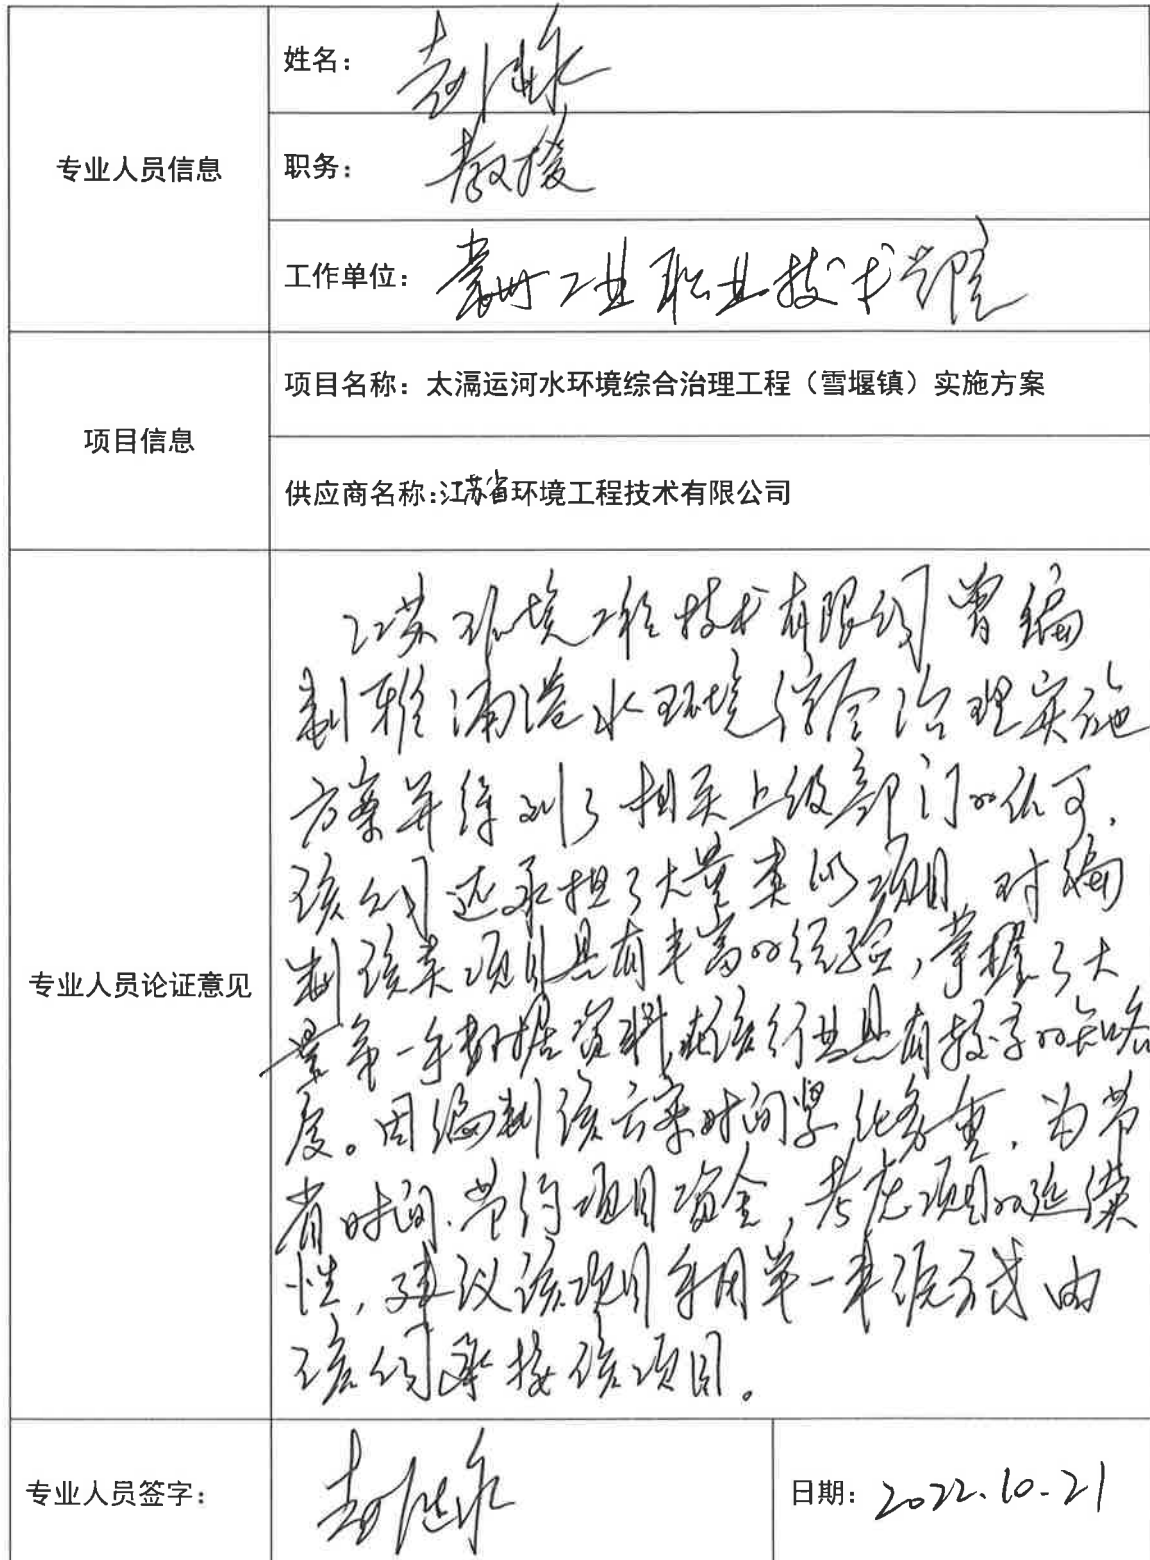 专业人员信息
姓名：
职务： 教授
工作单位： 常州工业职业技术学院
项目信息
项目名称：太滆运河水环境综合治理工程（雪堰镇）实施方案
供应商名称：江苏省环境工程技术有限公司
专业人员论证意见
江苏环境工程技术有限公司曾编
制雅浦港水环境综合治理实施
方案并得到了相关上级部门的认可，
该公司还承担了大量类似项目，对编
制该类项目具有丰富的经验，掌握了大
量第一手数据资料，在该行业具有较高的知名
度。因编制该方案时间紧任务重，为节
省时间、节约项目资金，考虑项目的延续
性，建议该项目采用单一来源方式由
该公司承接该项目。
专业人员签字：
日期： 2022.10.21